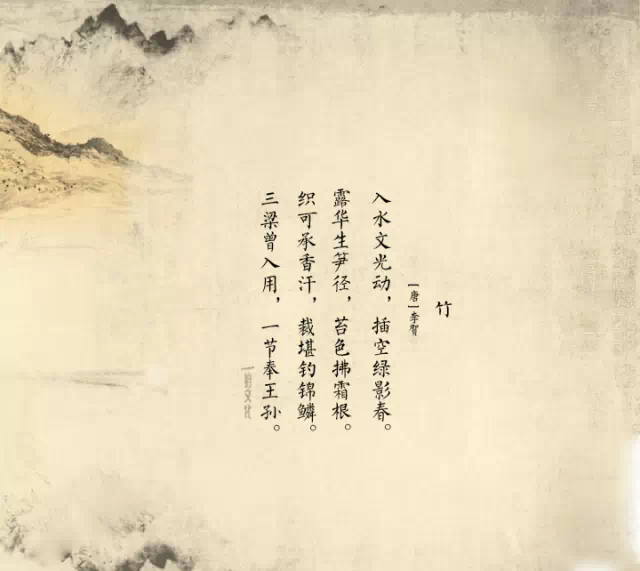 竹
[唐]李贺
入水文光动，插空绿影春。
露华生笋径，苔色拂霜根。
织可承香汗，裁堪钓锦鳞。
三梁曾入用，一节奉王孙。